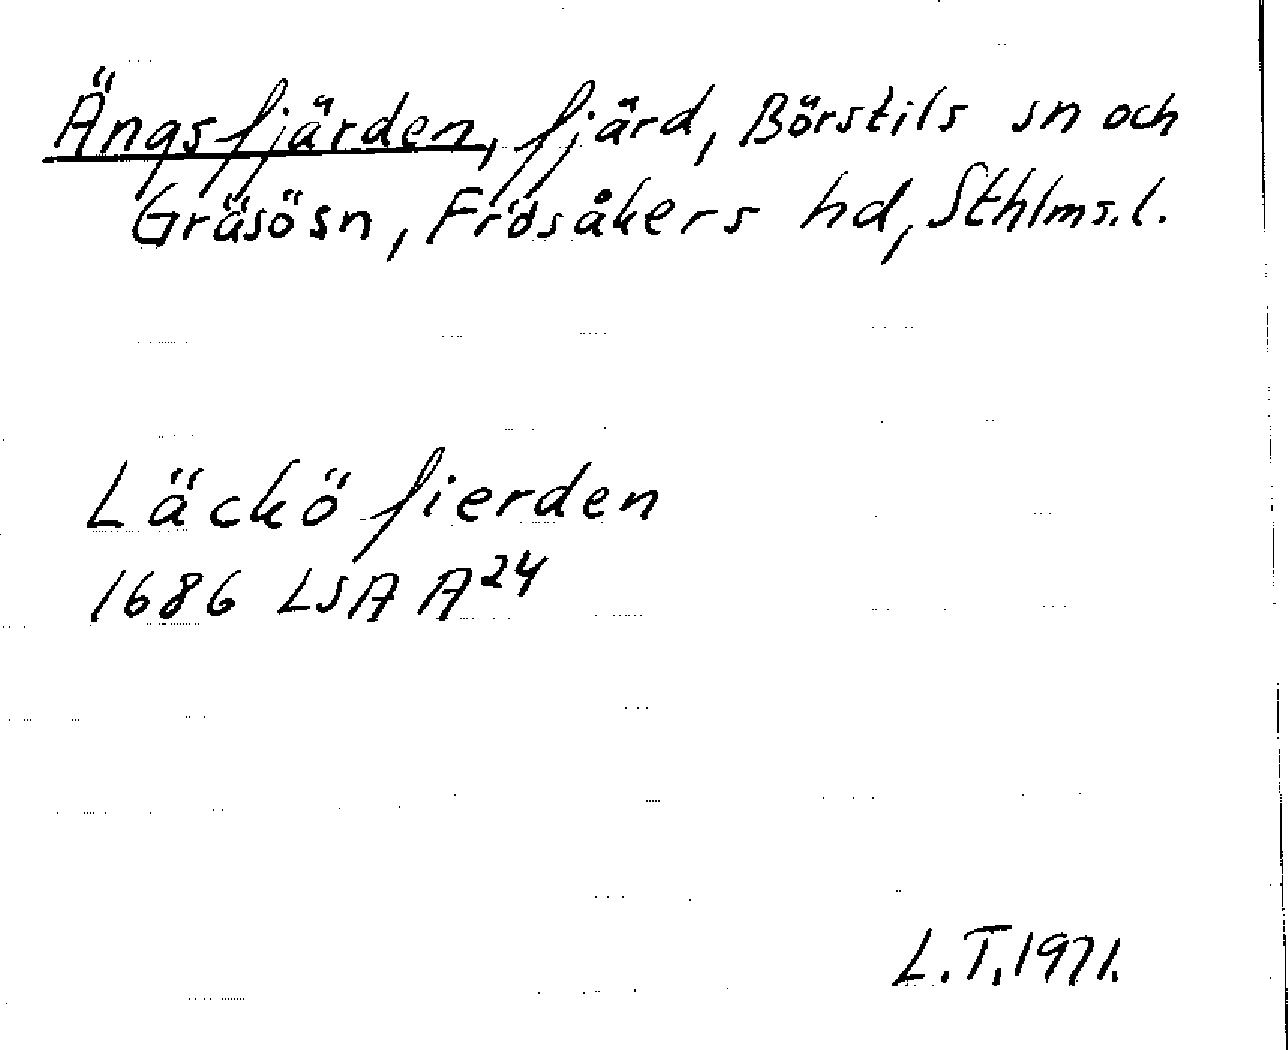 Ängsfjärden, fjärd, Börstils sn och
Gräsö sn, Frösåkers hd, Sthlms. l.
Läckö fierden
1686 LSA A²⁴
L.T. 1971.